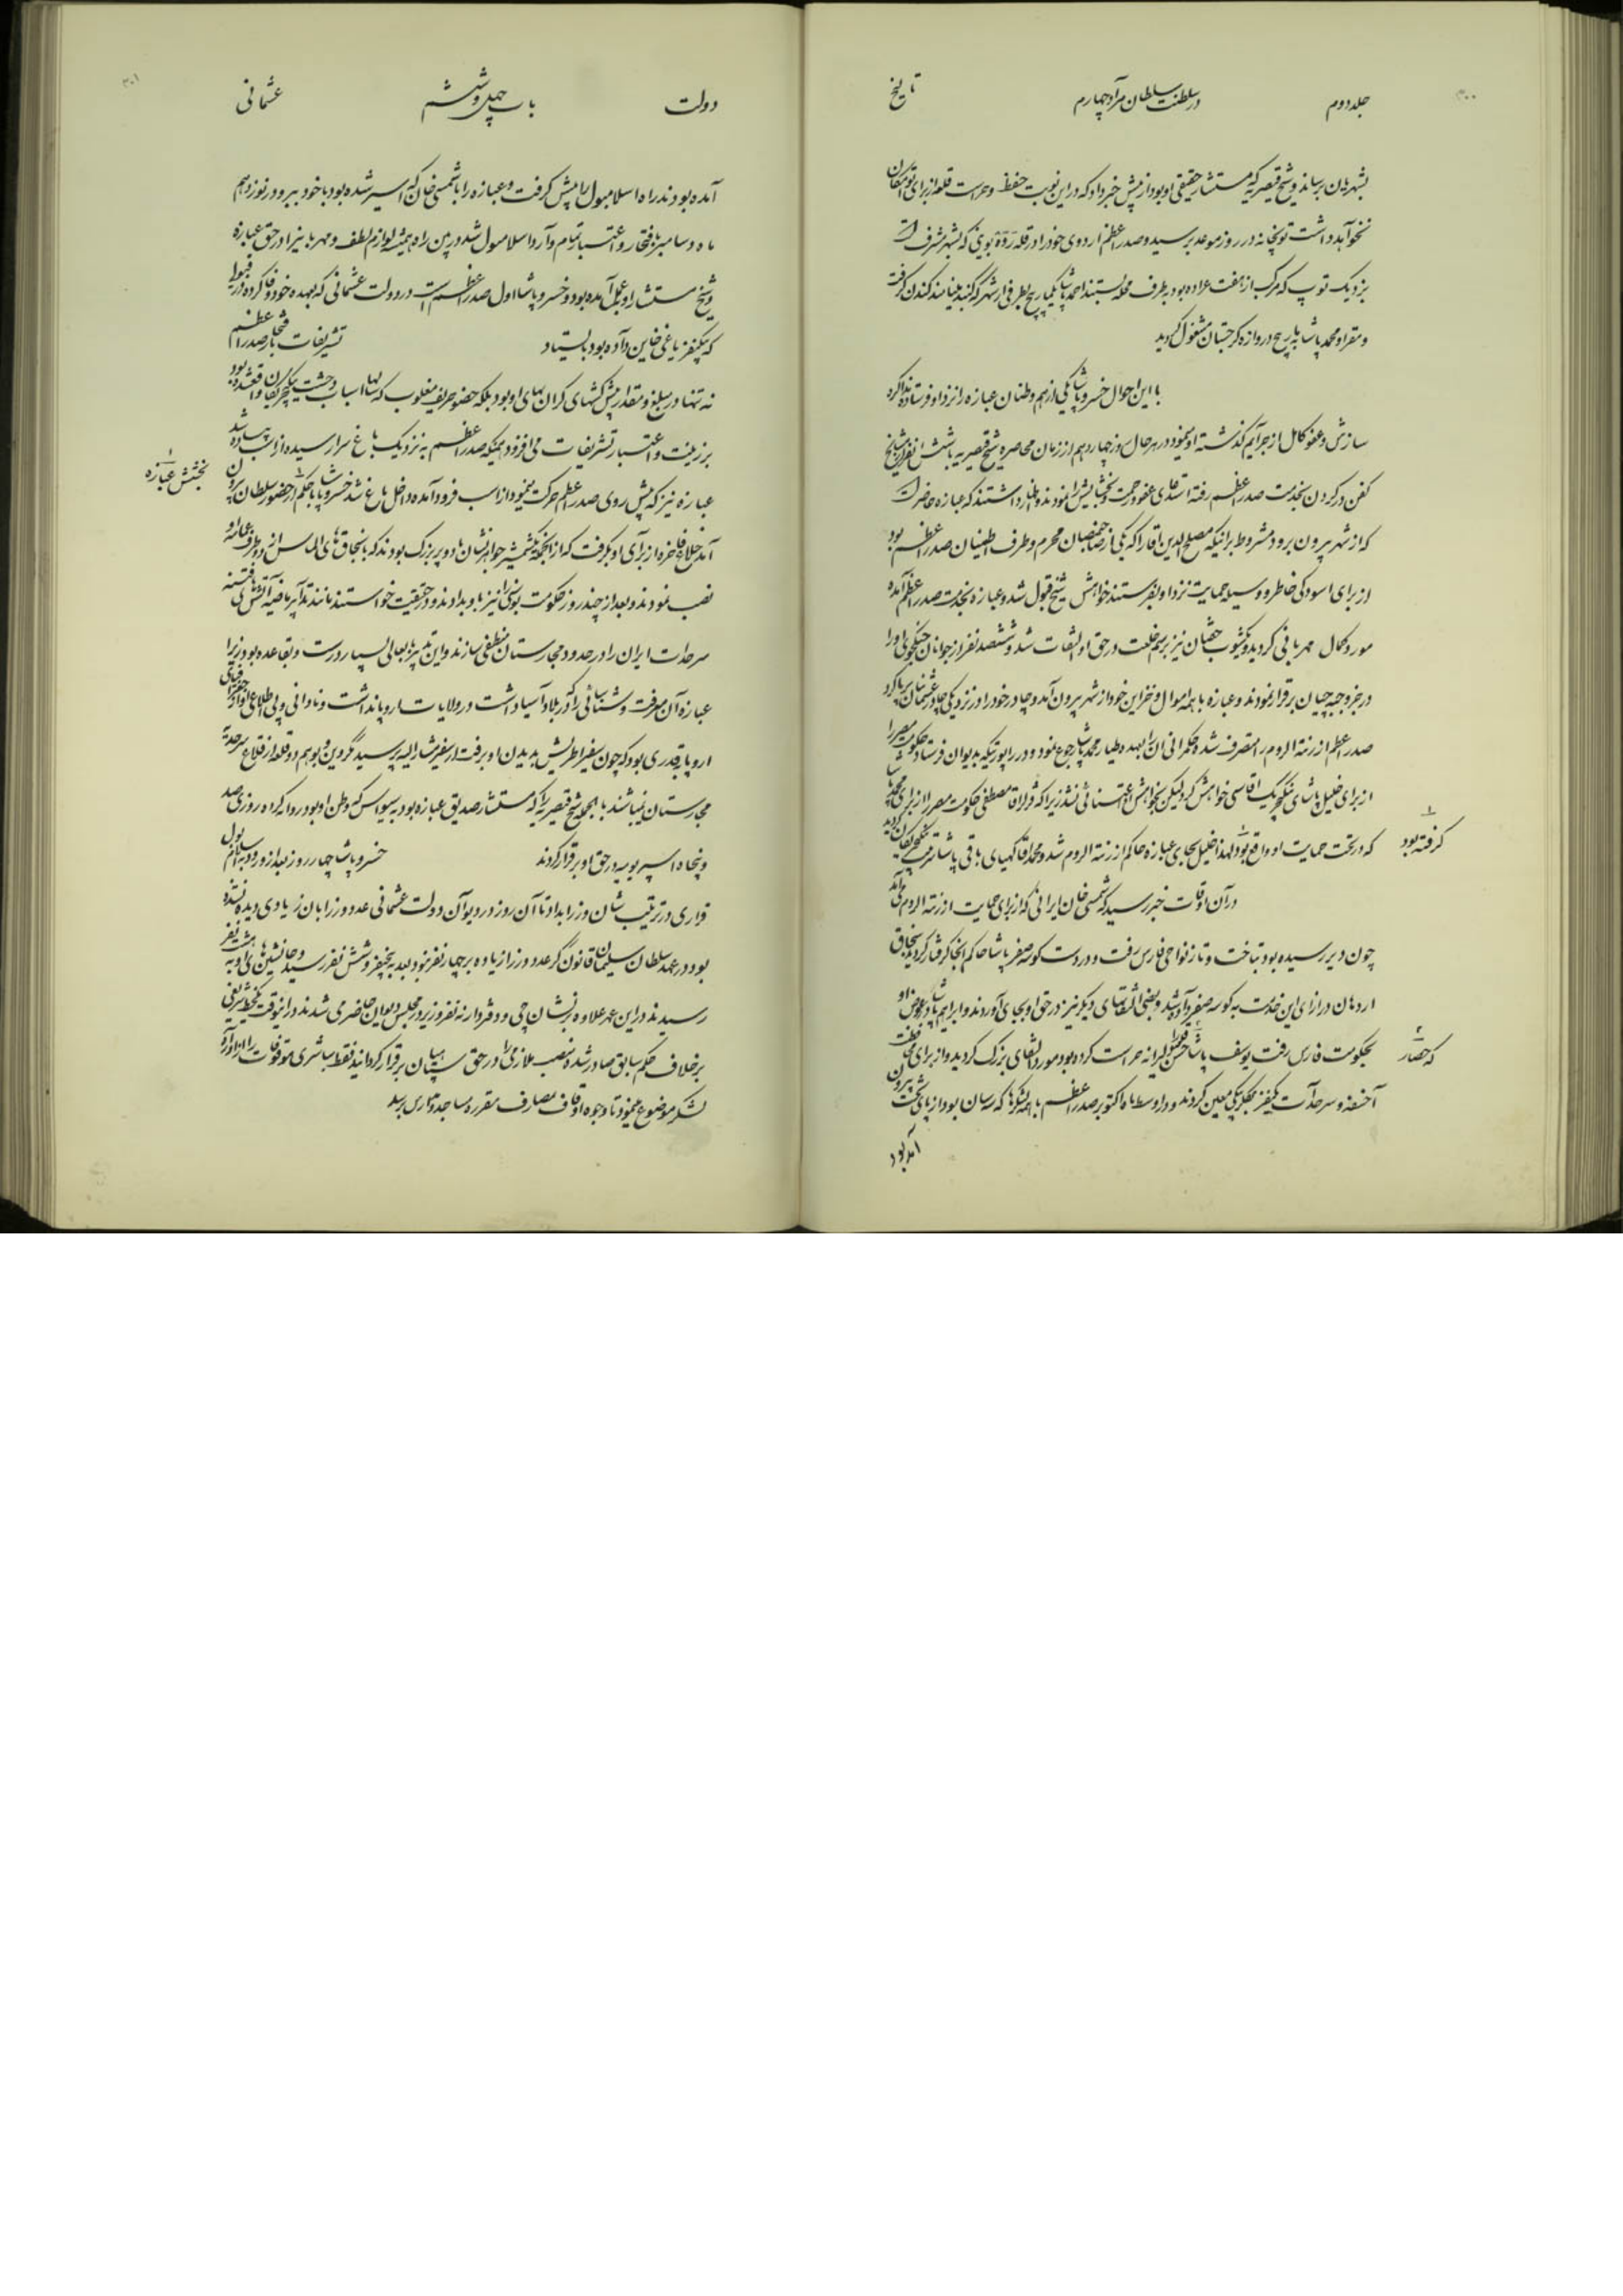 ۳۰۰
جلد دوم
در سلطنت سلطان مراد چهارم
تاریخ
بشهر مان برساند و شیخ قیصریه که مستشار حقیقی او بود از پیش خبر داد که در این نوبت حفظ و حراست قلعه از برای او امکان
نخواهد داشت توپخانه در روز موعد برسید و صدر اعظم اردوی خود را در قله بوینی که بشهر مشرف است
نزدیک توپ که مرکب از هفت عراده بود بطرف محله بستند احمد پاشا بطرفی از شهر که گنبد مینامند کندن گرفت
و مقراو محمد پاشا به دروازه گرجستان مشغول گردید
با این احوال خسرو پاشا یکی از هم وطنان عبازه را نزد او فرستاده ندا کرد
سازش و عفو کامل از جرایم گذشته او بنمود در هر حال روز چهاردهم از زمان محاصره شیخ قیصریه با شش نفر از مشایخ
کفن در گردن بخدمت صدر اعظم رفته استدعای عفو و رحمت و بخشایش نمودند و اظهار داشتند که عبازه حاضر است
که از شهر بیرون برود مشروط بر اینکه مصلح الدین آقا را که یکی از صاحبمنصبان محرم و طرف اطمینان صدر اعظم بود
از برای آسودگی خاطر و وسیله حمایت نزد او بفرستند خواهش شیخ قبول شد و عبازه بخدمت صدر اعظم آمده
مورد کمال مهربانی گردید و یکثوب خفتان نیز برسم خلعت در حق او التفات شد و ششصد نفر از جوانان جنگجوی او را
در جزو جبه چیان برقرار نمودند و عبازه با همه اموال و خزاین خود از شهر بیرون آمد و چادر خود را در نزدیکی چادر عثمانیان برپا کرد
صدر اعظم ارزنة الروم را متصرف شده حکمرانی آن را بعهده طیار محمد پاشا رجوع نمود و در راپورتیکه بدیوان فرستاد حکومت مصر را
از برای خلیل پاشای ینکچریک آقاسی خواهش کرد لیکن بخواهش او اعتنائی نشد زیرا که قزلر آقا مصطفی حکومت مصر را از برای محمد پاشا
گرفته بود
که در تحت حمایت او واقع بود لهذا خلیل بجای عبازه حاکم ارزنة الروم شد و محمد آقا کهیای باقی پاشا سر ینکچریان گردید
در آن اوقات خبر رسید که شمسی خان ایرانی که از برای حمایت ارزنة الروم می آمد
چون دیر رسیده بود بتاخت و تاز نواحی قارس رفت و در دست کوسه صفر پاشا حاکم آنجا گرفتار گردید سنجاق
اردهان در ازای این خدمت به کوسه صفر داده شد و بعضی التفاتهای دیگر نیز در حق او بجای آوردند و ابراهیم پاشا در عوض او
که حصار
بحکومت قارس رفت یوسف پاشا حسن قلعه را دلیرانه حراست کرده بود مورد التفاتهای بزرگ گردید و از برای محافظت
آخسقه و سرحدات یکنفر بیگلربیگی معین کردند و در اواسط ماه اکتوبر صدر اعظم با همه لشکرها که سه سان بود از پای تخت بیرون
آمده بود
۳۰۱
دولت
باب چهل و ششم
عثمانی
آمده بودند راه اسلامبول را پیش گرفت و عبازه را با شمسی خان که اسیر شده بود با خود ببرد و در نوزدهم
ماه دسامبر با افتخار و اعتبار تمام وارد اسلامبول شد در بین راه همیشه لوازم لطف و مهربانی را در حق عبازه
و شیخ مستشار او بعمل آمده بود و خسرو پاشا اول صدر اعظم است در دولت عثمانی که بعهده خود وفا کرده و در قولی
که بیکنفر یاغی خاین داده بود بایستاد
تشریفات افتخار صدر اعظم
نه تنها در مبلغ و مقدار پیش کشهای گران بهای او بود بلکه حضور حریف مغلوب که سالها اسباب وحشت ینکچریان واقع شده بود
بر زینت و اعتبار تشریفات می افزود همینکه صدر اعظم به نزدیک باغ سرا رسیده از اسب پیاده شد
بخشش عبازه
عبازه نیز که پیش روی صدر اعظم حرکت مینمود از اسب فرود آمده داخل باغ شد خسرو پاشا با حکم از حضور سلطان بیرون
آمد خلاع فاخره از برای او بگرفت که از آنجمله شمشیر جواهر نشان و دو پر بزرگ بودند که با سنجاق های الماس از دو طرف عمامه او
نصب نمودند و بعد از چند روز حکومت بوسنی را نیز باو بدادند و در حقیقت خواستند مانند تدابیر ماضیه آتش فتنه
سرحدات ایران را در حدود مجارستان منطفی سازند و این تدبیر بهمه حال بسیار درست و بقاعده بود زیرا
عبازه آن معرفت و شناسائی را که در بلاد آسیا داشت در ولایات اروپا نداشت و نادانی و بی اطلاعی او از جغرافیای
اروپا بقدری بود که چون سفیر اطریش بدیدن او برفت از سفیر مشار الیه پرسید مگر وین و بوهم دو قلعه از قلاع سرحدیه
مجارستان نمیباشند بالجمله شیخ قیصریه را که مستشار صدیق عبازه بود به سیواس که وطن او بود روانه کرده روزی صد
و پنجاه اسپر یومیه در حق او برقرار کردند
خسرو پاشا چهار روز بعد از ورود به اسلامبول
قراری در ترتیب شان وزرا بداد تا آن روز در دیوان دولت عثمانی عدد وزرا بآن زیادی دیده نشده
بود در عهد سلطان سلیمان قانون گر عدد وزرا زیاده بر چهار نفر نبود بعد به پنجنفر و شش نفر رسید و جانشینهای او به هشت نفر
رسیدند در این عهد علاوه بر نشان چی و دفتردار نه نفر وزیر در مجلس دیوان حاضر می شدند در اینوقت یکخط شریفی
برخلاف حکم سابق صادر شده منصب ملازمی را در حق سپاهیان برقرار گردانید فقط مباشری موقوفات را از افراد
لشکر موضوع نمود تا وجوه اوقاف بمصارف مقرره مساجد و مدارس برسد